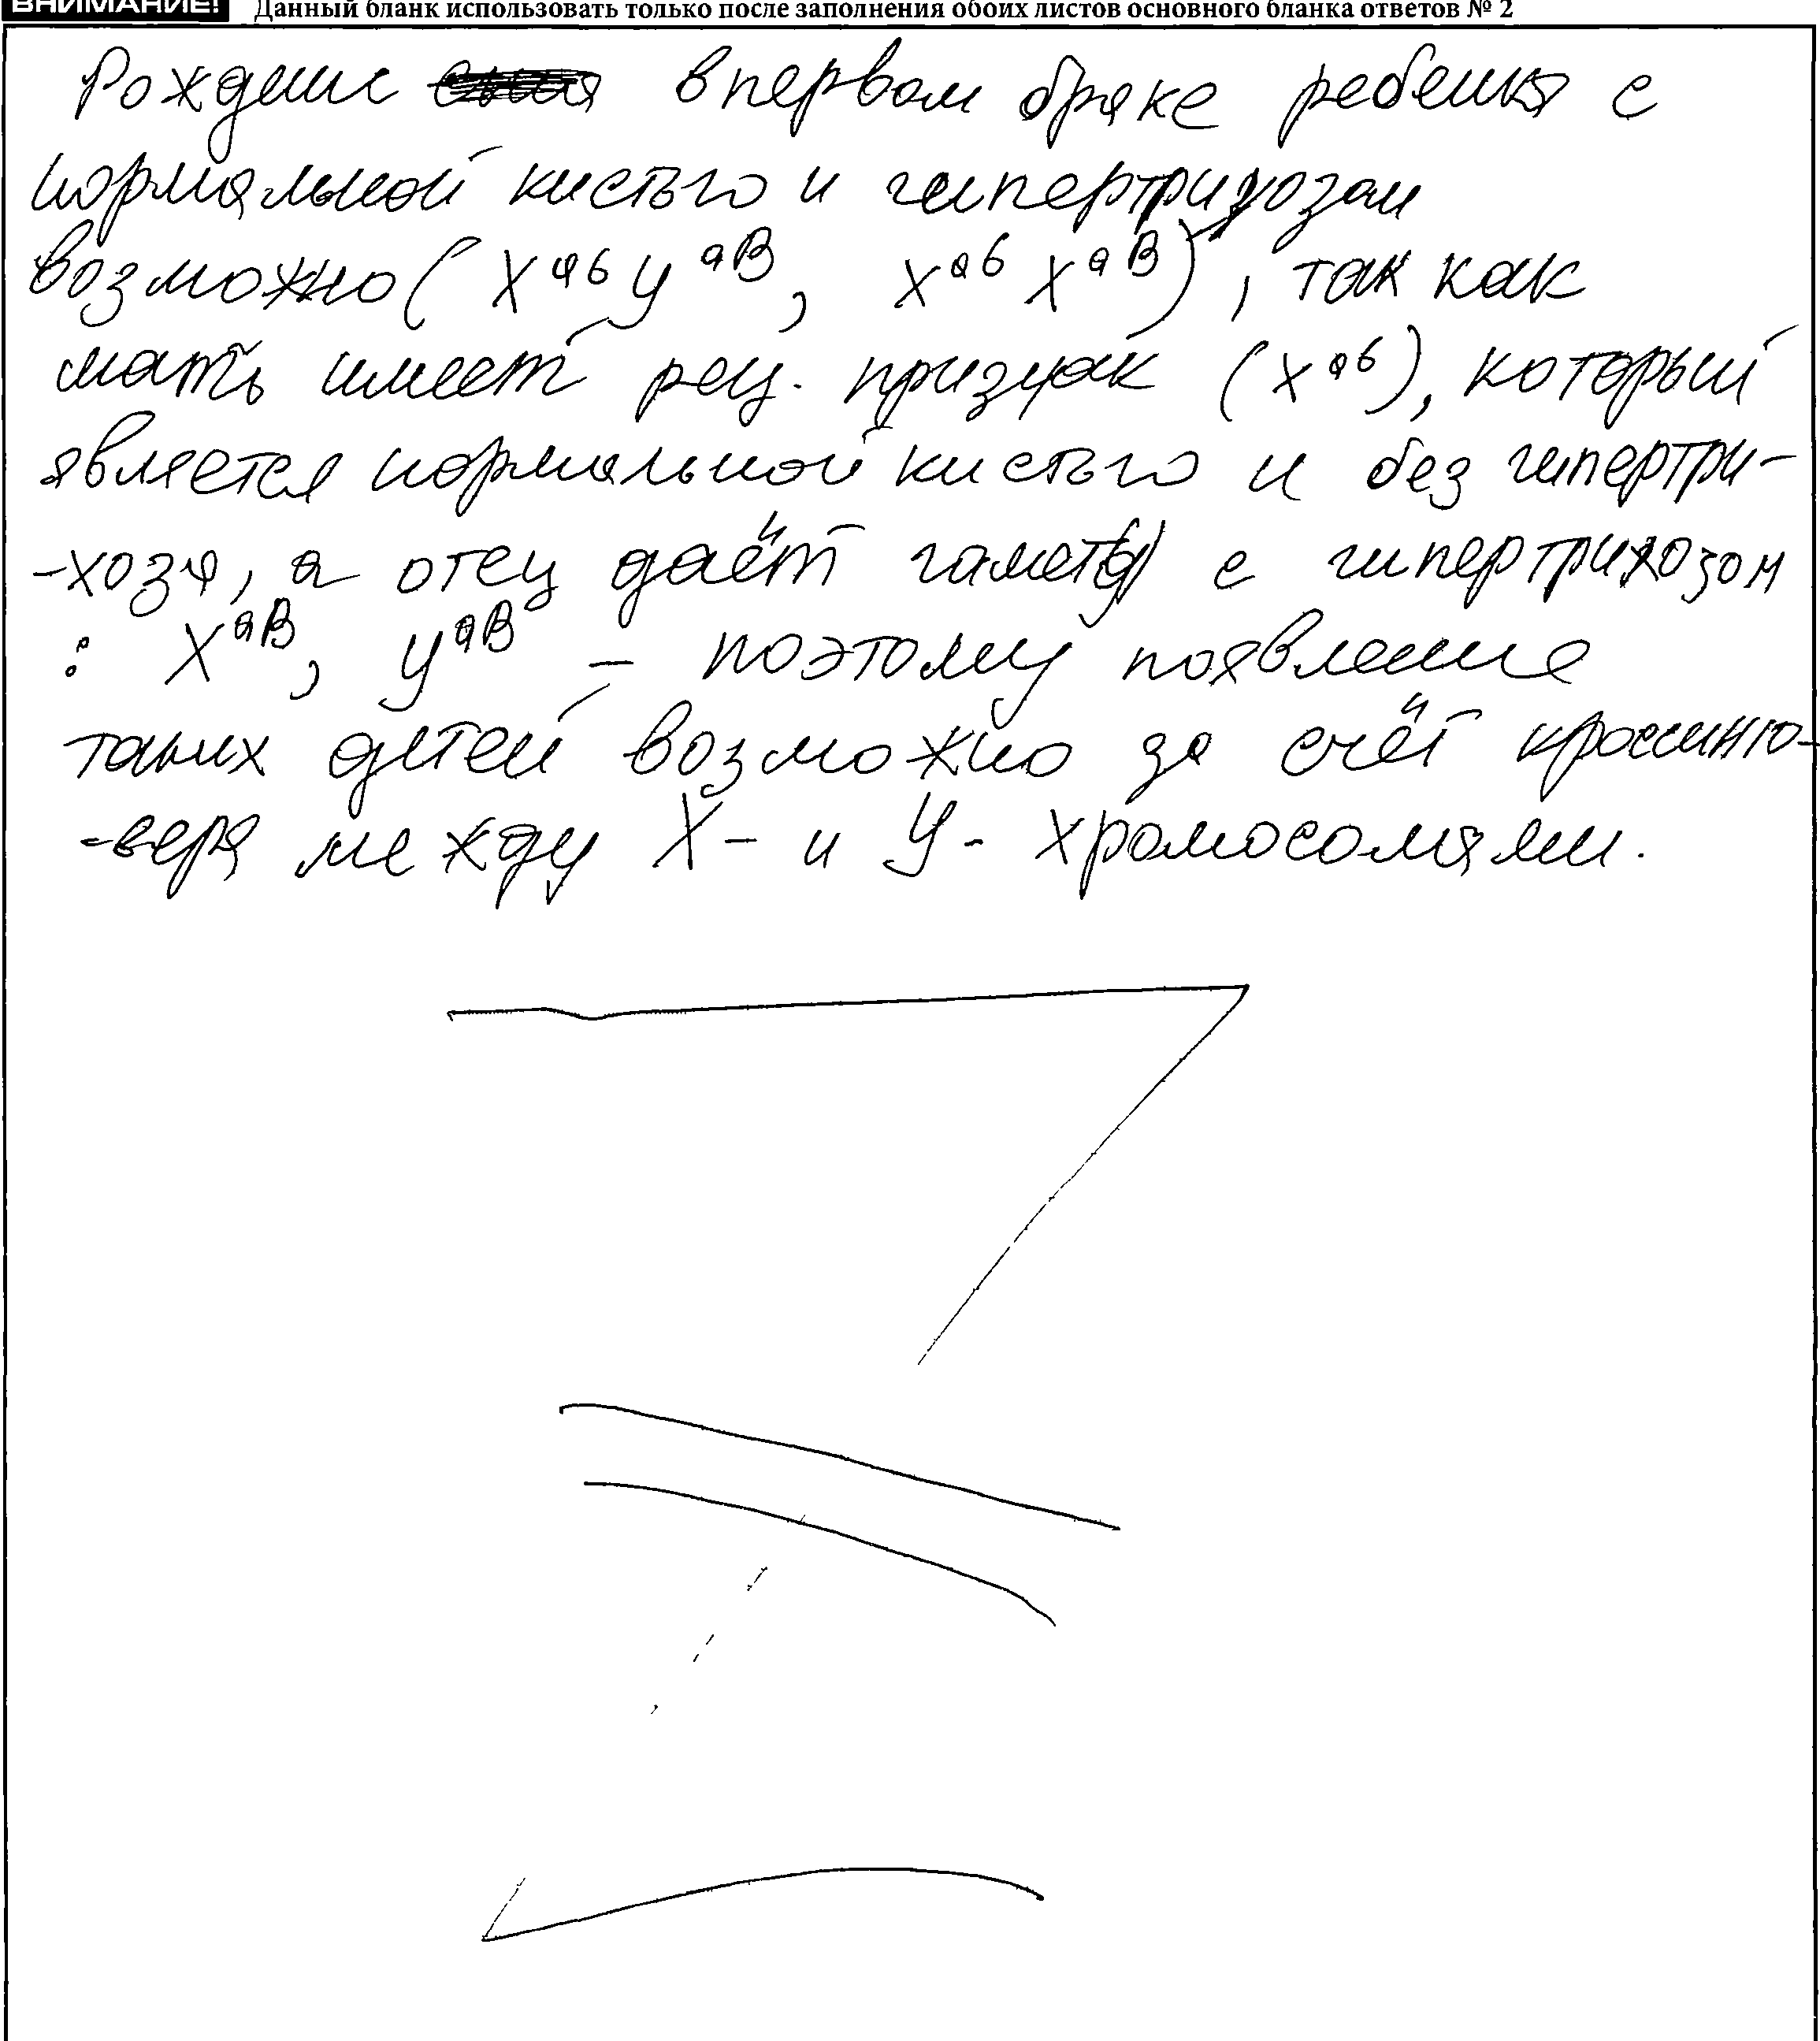 ВНИМАНИЕ! Данный бланк использовать только после заполнения обоих листов основного бланка ответов № 2
Рождение в первом браке ребенка с
нормальной кистью и гипертрихозом
возможно (Xᵃᵇ Yᵃᴮ, Xᵃᵇ Xᵃᴮ), так как
мать имеет рец. признак (Xᵃᵇ), который
является нормальной кистью и без гипертри-
-хоза, а отец даёт гаметы с гипертрихозом
: Xᵃᴮ, Yᵃᴮ – поэтому появление
таких детей возможно за счёт кроссинго-
-вера между X- и Y- хромосомами.